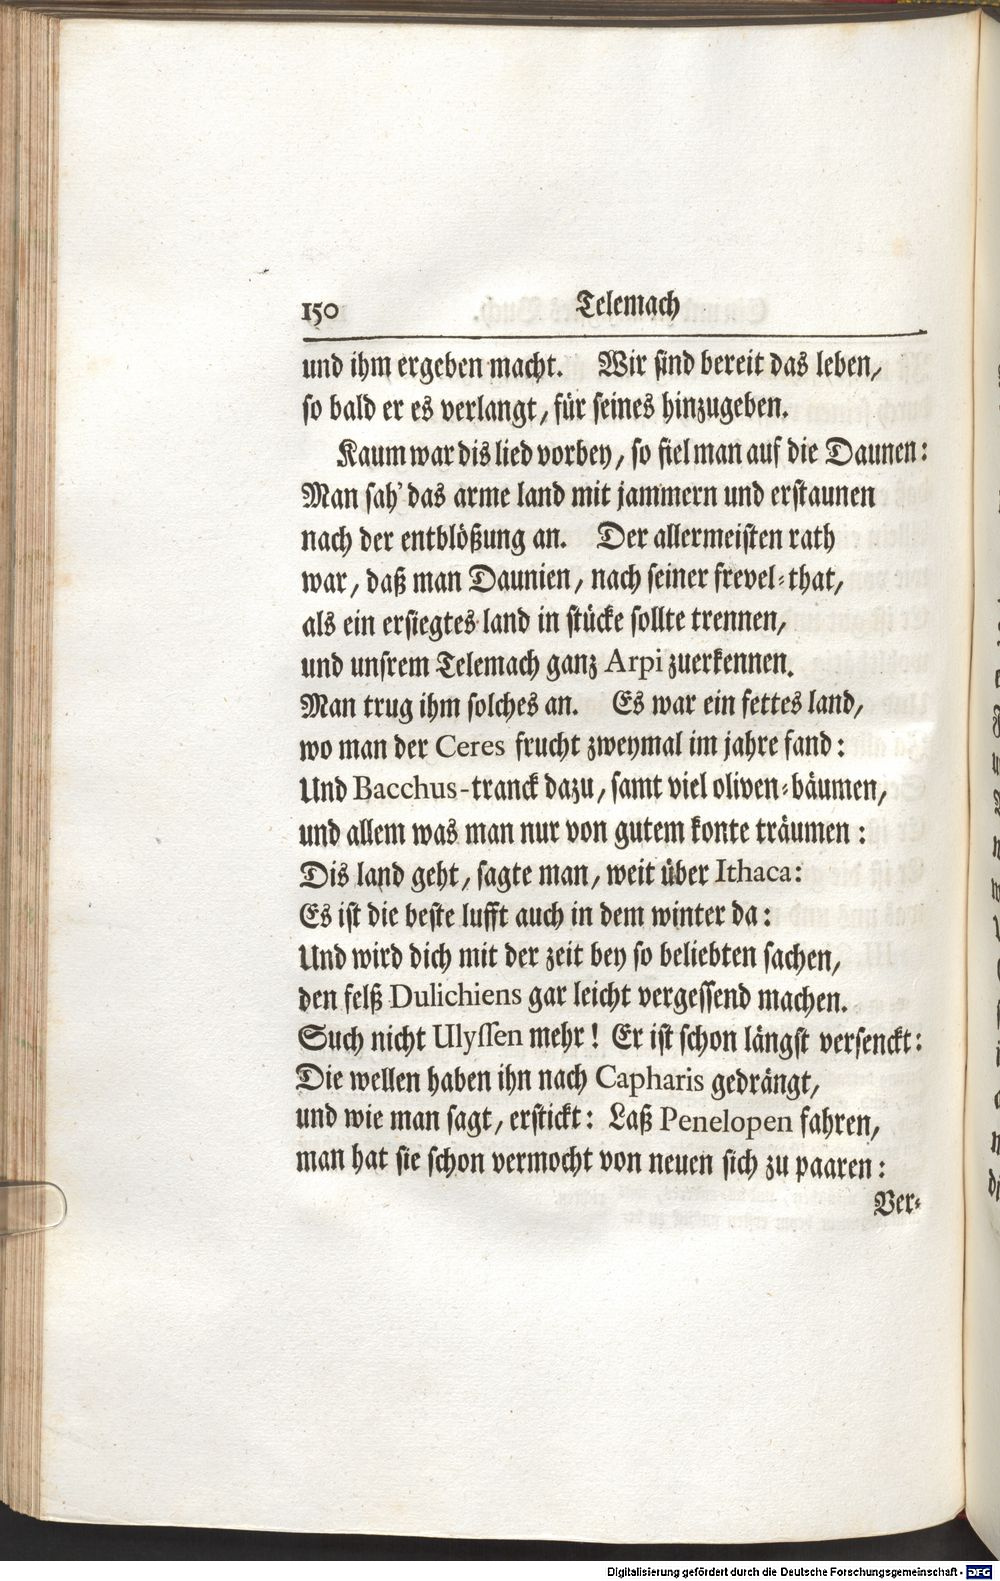 150 Telemach
und ihm ergeben macht. Wir sind bereit das leben,
so bald er es verlangt, für seines hinzugeben.
Kaum war dis lied vorbey, so fiel man auf die Daunen:
Man sah' das arme land mit jammern und erstaunen
nach der entblößung an. Der allermeisten rath
war, daß man Daunien, nach seiner frevel-that,
als ein ersiegtes land in stücke sollte trennen,
und unsrem Telemach ganz Arpi zuerkennen.
Man trug ihm solches an. Es war ein fettes land,
wo man der Ceres frucht zweymal im jahre fand:
Und Bacchus-tranck dazu, samt viel oliven-bäumen,
und allem was man nur von gutem konte träumen:
Dis land geht, sagte man, weit über Ithaca:
Es ist die beste lufft auch in dem winter da:
Und wird dich mit der zeit bey so beliebten sachen,
den felß Dulichiens gar leicht vergessend machen.
Such nicht Ulyssen mehr! Er ist schon längst versenckt:
Die wellen haben ihn nach Capharis gedrängt,
und wie man sagt, erstickt: Laß Penelopen fahren,
man hat sie schon vermocht von neuen sich zu paaren:
Ver-
Digitalisierung gefördert durch die Deutsche Forschungsgemeinschaft - DFG